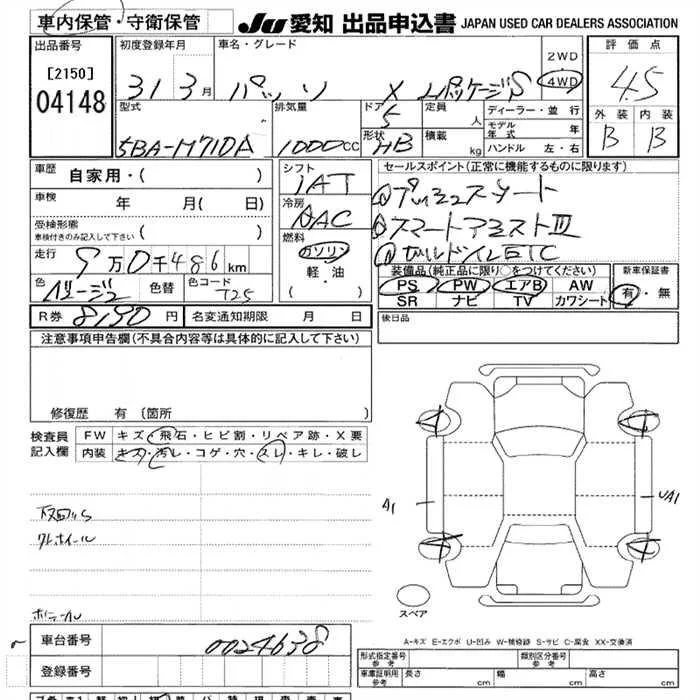 車内保管・守衛保管 JU 愛知 出品申込書 JAPAN USED CAR DEALERS ASSOCIATION
出品番号 [2150] 04148
初度登録年月 31 3月
車名・グレード パッソ X LパッケージS
2WD 4WD
評価点 4.5
外装 内装 B B
型式 5BA-M710A
排気量 1000cc
ドア 5 形状 HB
定員 人 積載 kg
ディーラー・並行
モデル年式 年
ハンドル 左・右
車歴 自家用・( )
車検 年 月( 日)
受検形態 車検付きのみ記入して下さい ( )
走行 9万0千486km
色 ベージュ 色替 色コード T25
シフト IAT
冷房 AAC
燃料 ガソリン 軽・油 ・( )
セールスポイント(正常に機能するものに限ります)
スマートアシストIII
ETC
装備品(純正品に限り○をつけてください)
PS PW エアB AW
SR ナビ TV カワシート
新車保証書 有・無
R券 8190円 名変通知期限 月 日
後日品
注意事項申告欄(不具合内容等は具体的に記入して下さい)
修復歴 有(箇所 )
検査員記入欄 FW キズ・飛石・ヒビ割・リペア跡・X要
内装 キズ・汚レ・コゲ・穴・スレ・キレ・破レ
A1 UA1
スペア
A-キズ E-エクボ U-凹み W-補修跡 S-サビ C-腐食 XX-交換済
車台番号 0024638
登録番号
形式指定番号 参考 類別区分番号 参考
車庫証明用 参考 長さ cm 幅 cm 高さ cm